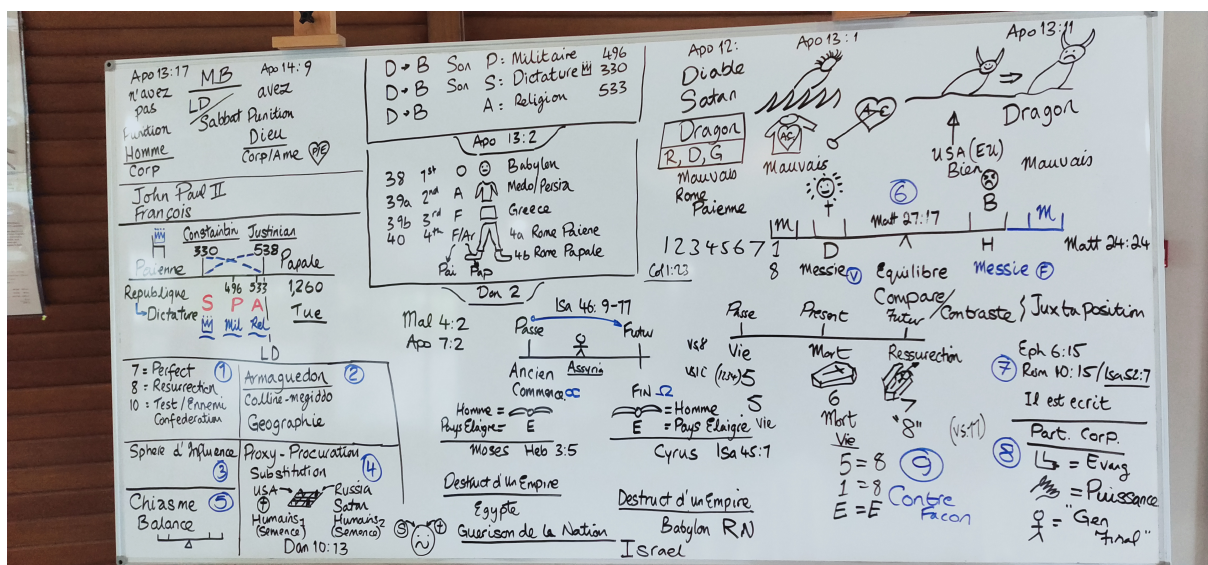 Apo 13:17 MB Apo 14:9
n'avez avez
pas LD
Sabbat Punition
Punition Dieu
Homme Corp/Ame P/E
Corp
John Paul II
François
Constantin Justinian
330 538
Paienne Papale
Republique 496 533 1,260
Dictature S P A Tue
Mil Rel
LD
7 = Perfect 1
8 = Resurrection
10 = Test/Ennemi
Confederation
Armaguedon 2
Colline-megiddo
Geographie
Sphere d'Influence
3
Proxy-Procuration
Substitution 4
USA Russia
Satan
Humains Humains
(Semence) (Semence)
Dan 10:13
Chiasme 5
Balance
D→B Son P: Militaire 496
D→B Son S: Dictature 330
D→B A: Religion 533
Apo 13:2
38 1st O Babylon
39a 2nd A Medo/Persia
39b 3rd F Greece
40 4th F/Ar 4a Rome Paiene
4b Rome Papale
Pai Pap
Dan 2
Mal 4:2
Apo 7:2
Isa 46:9-11
Passe Futur
Assyria
Ancien
Commenc α FIN Ω
Homme =
Pays Elaigre = E
Moses Heb 3:5
= Homme 5
E = Pays Elaigre Vie
Cyrus Isa 45:1
Destruct d'un Empire
Egypte
Guerison de la Nation
Destruct d'un Empire
Babylon RN
Israel
S
Apo 12: Apo 13:1 Apo 13:11
Diable
Satan
Dragon
R, D, G
Mauvais
Rome
Paienne
AC
Mauvais
A=E
Dragon
USA (EU)
Bien
Mauvais
6
B
M Matt 27:17 M
1 2 3 4 5 6 7 1 D H Matt 24:24
Col 1:23 8 Messie V Equilibre Messie F
Compare/Contraste } Juxtaposition
Passe Present Futur
vs8 Vie Mort Ressurection
vs1c (1234) 5
6 "8" (vs11)
Mort
Vie
5 = 8 9
1 = 8 Contre
E = E Facon
Eph 6:15
7 Rom 10:15/Isa 52:7
Il est ecrit
Part. Corp.
8 = Evang
= Puissance
= "Gen
Final"